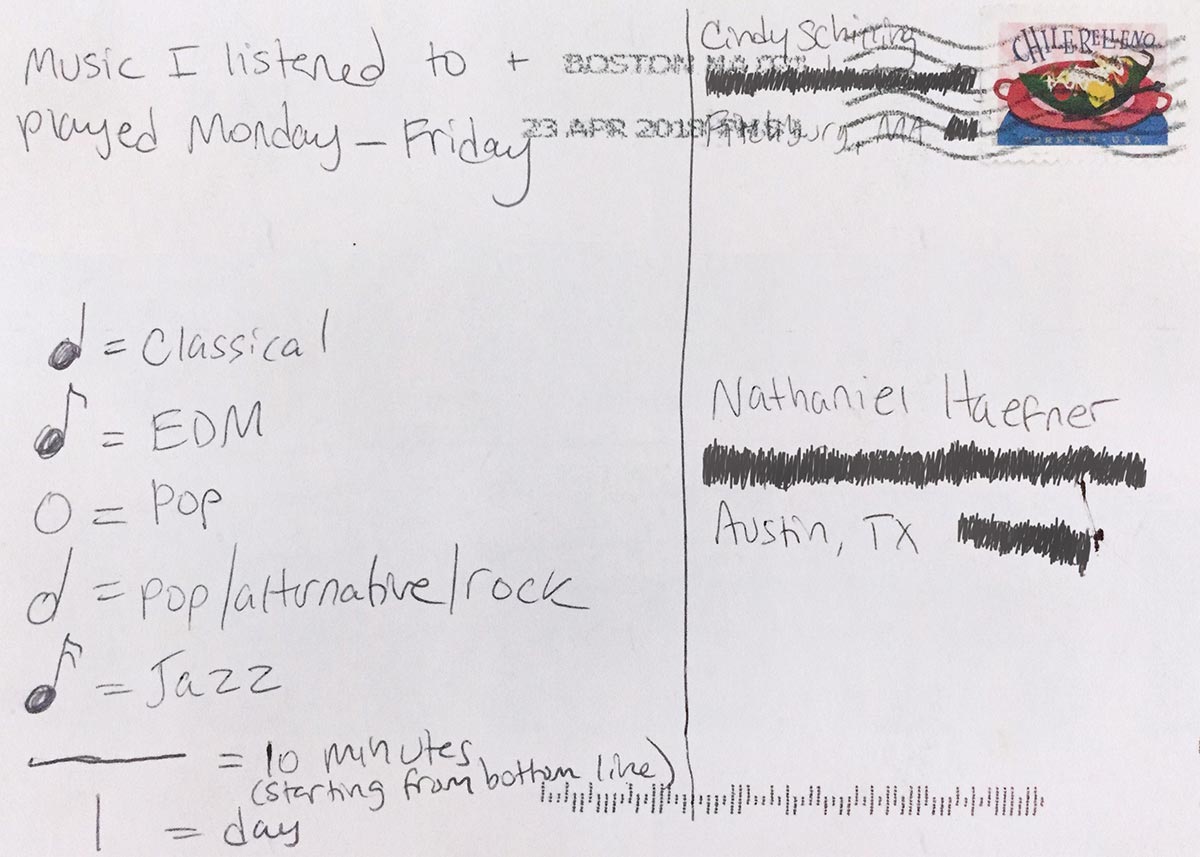 Music I listened to +
played Monday – Friday
= Classical
= EDM
O = Pop
= pop/alternative/rock
= Jazz
= 10 minutes
(starting from bottom line)
| = day
BOSTON MA
23 APR 2018 PM
Cindy Schirring
MA
CHILE RELLENO
FOREVER USA
Nathaniel Haefner
Austin, TX